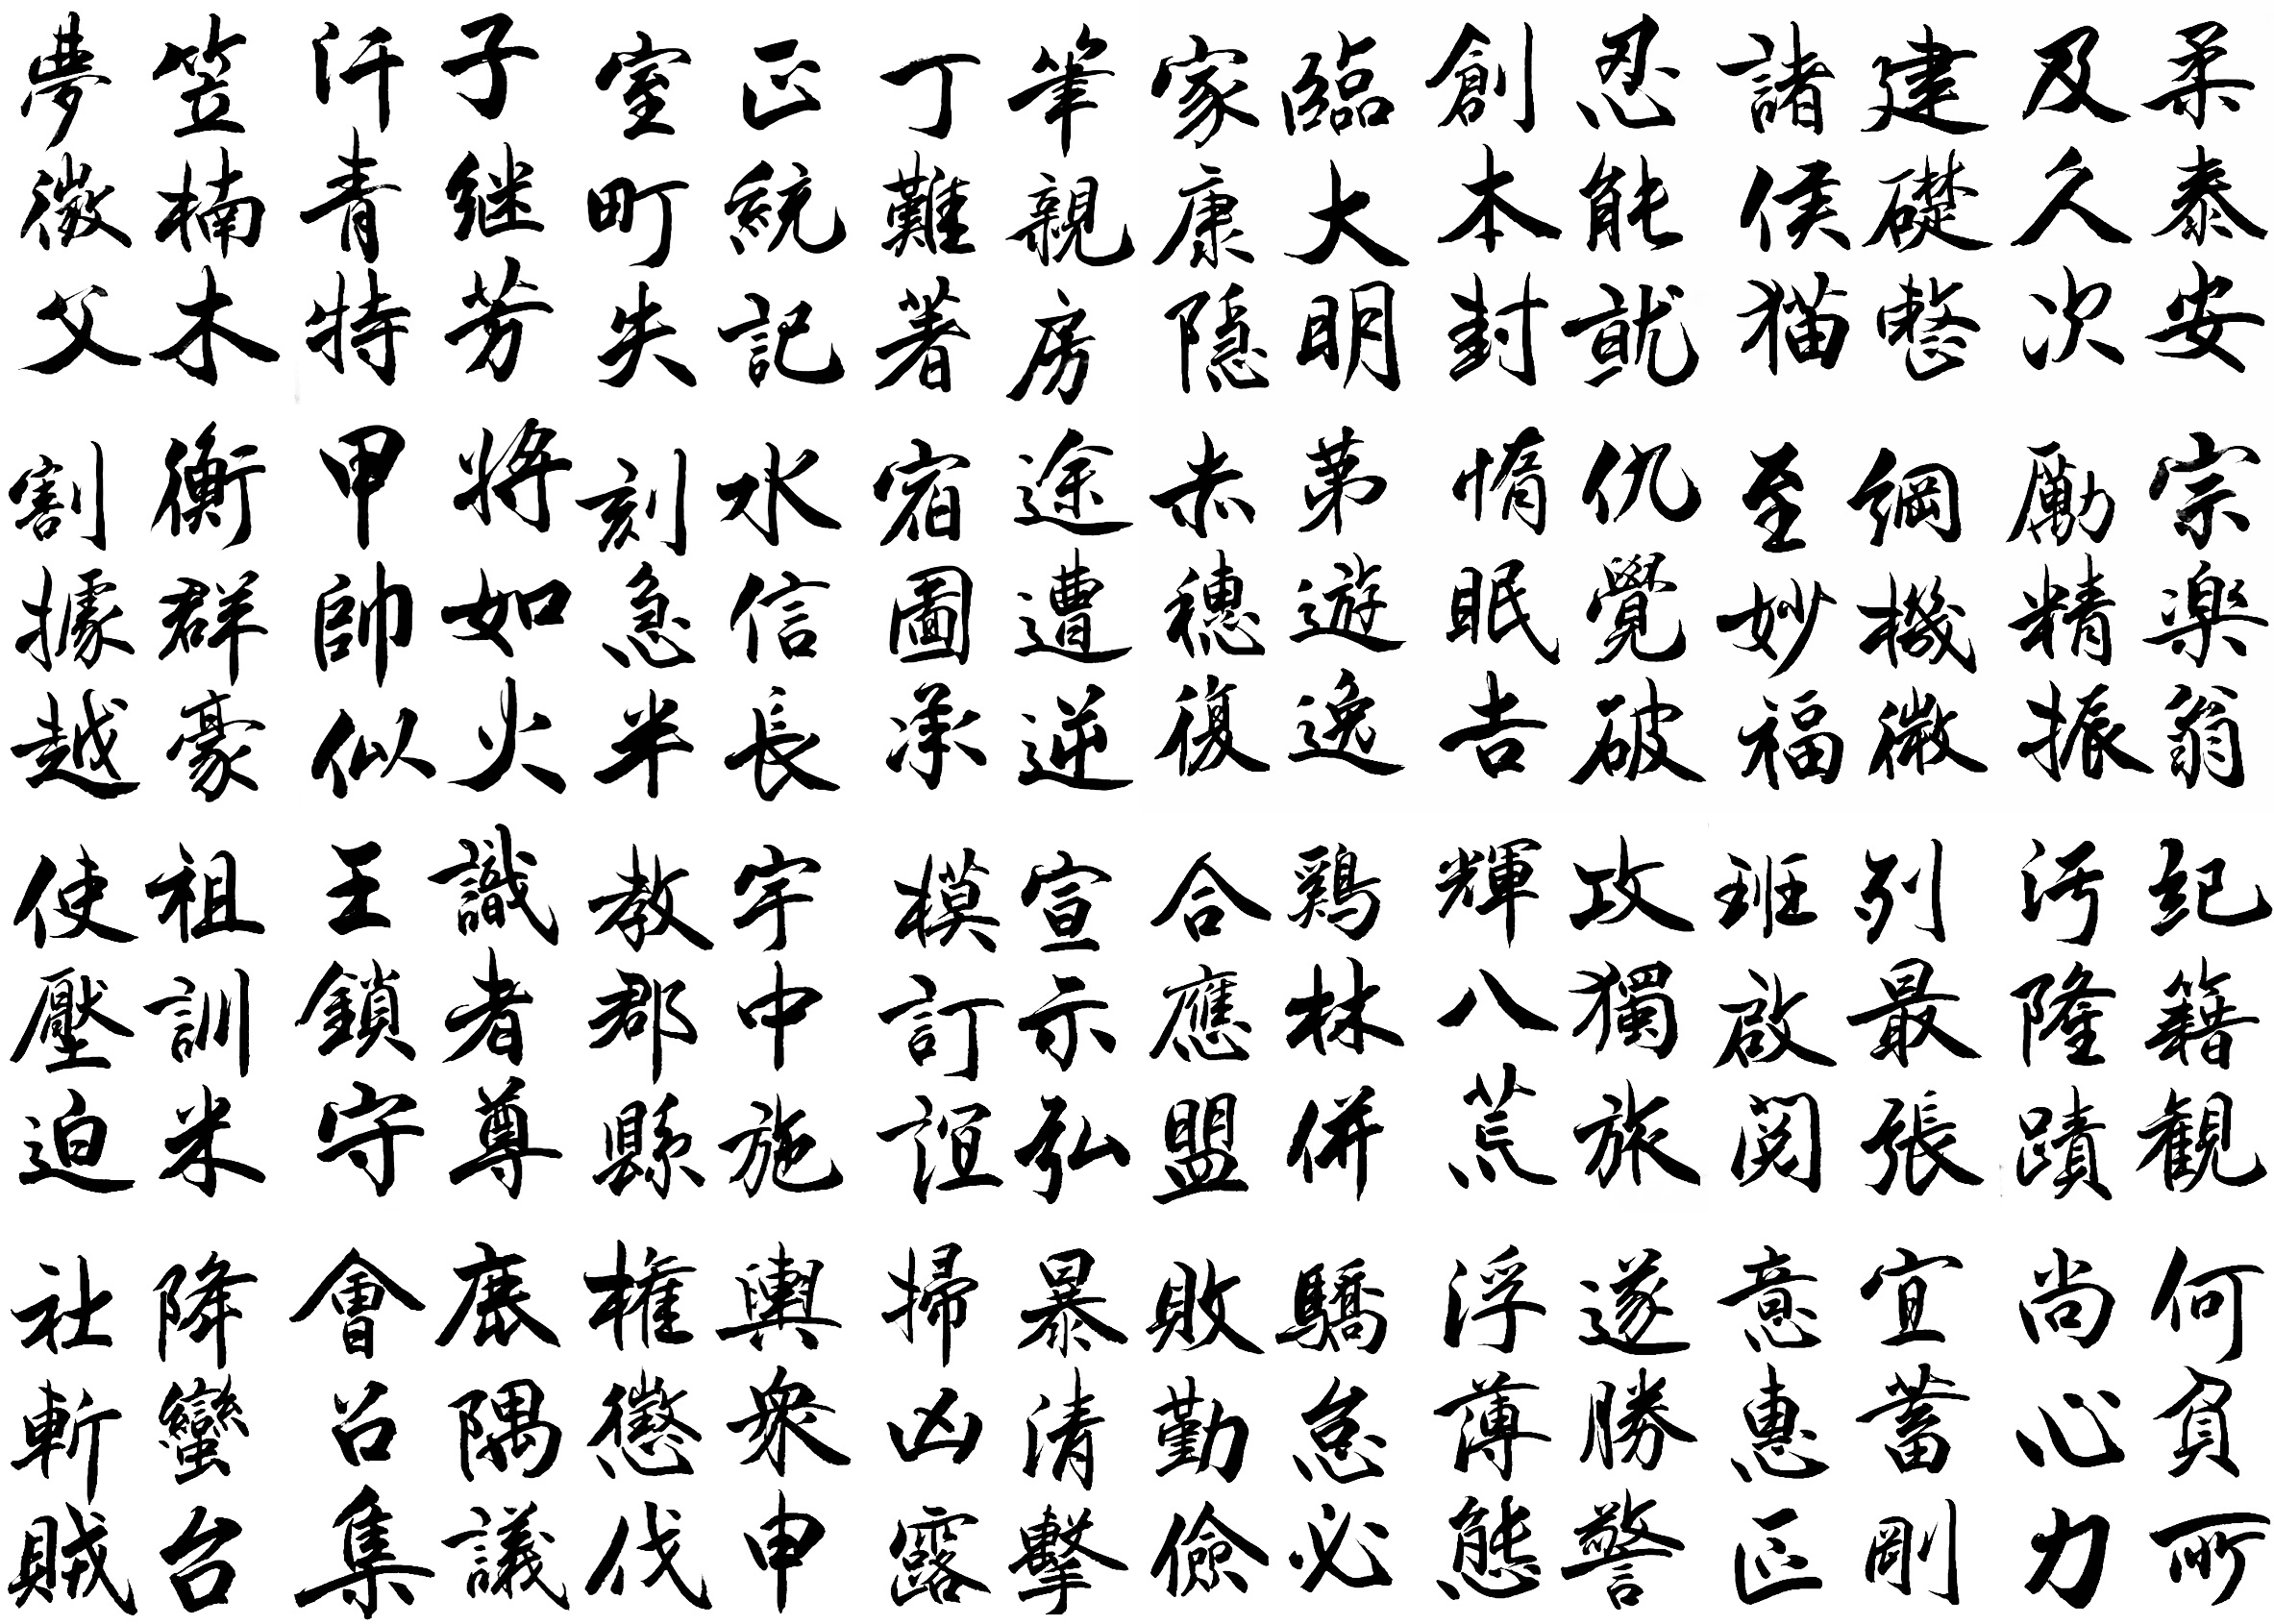 柔泰安宗楽翁紀籍観何負所
及人次勵精振汚隆蹟尚心力
建礎整綱機微列最張宜蓄剛
諸侯猫至妙福班啟閲意惠正
忍能就仇覺破攻獨旅遂勝警
創本封惰眠吉輝八荒浮薄態
臨大明第遊逸鶏林併驕怠必
家康隠赤穂復合應盟敗勤儉
筆親房途遭逆宣示弘暴清撃
丁難著宿圖承模訂誼掃凶露
正統記水信長宇中施輿衆申
室町失刻急半教郡縣権懲伐
子継芳將如火識者尊鹿隅議
汗青特甲帥似王鎖守會召集
笠楠木衡群豪祖訓米降蠻台
夢徴父割據越使壓迫社斬賊